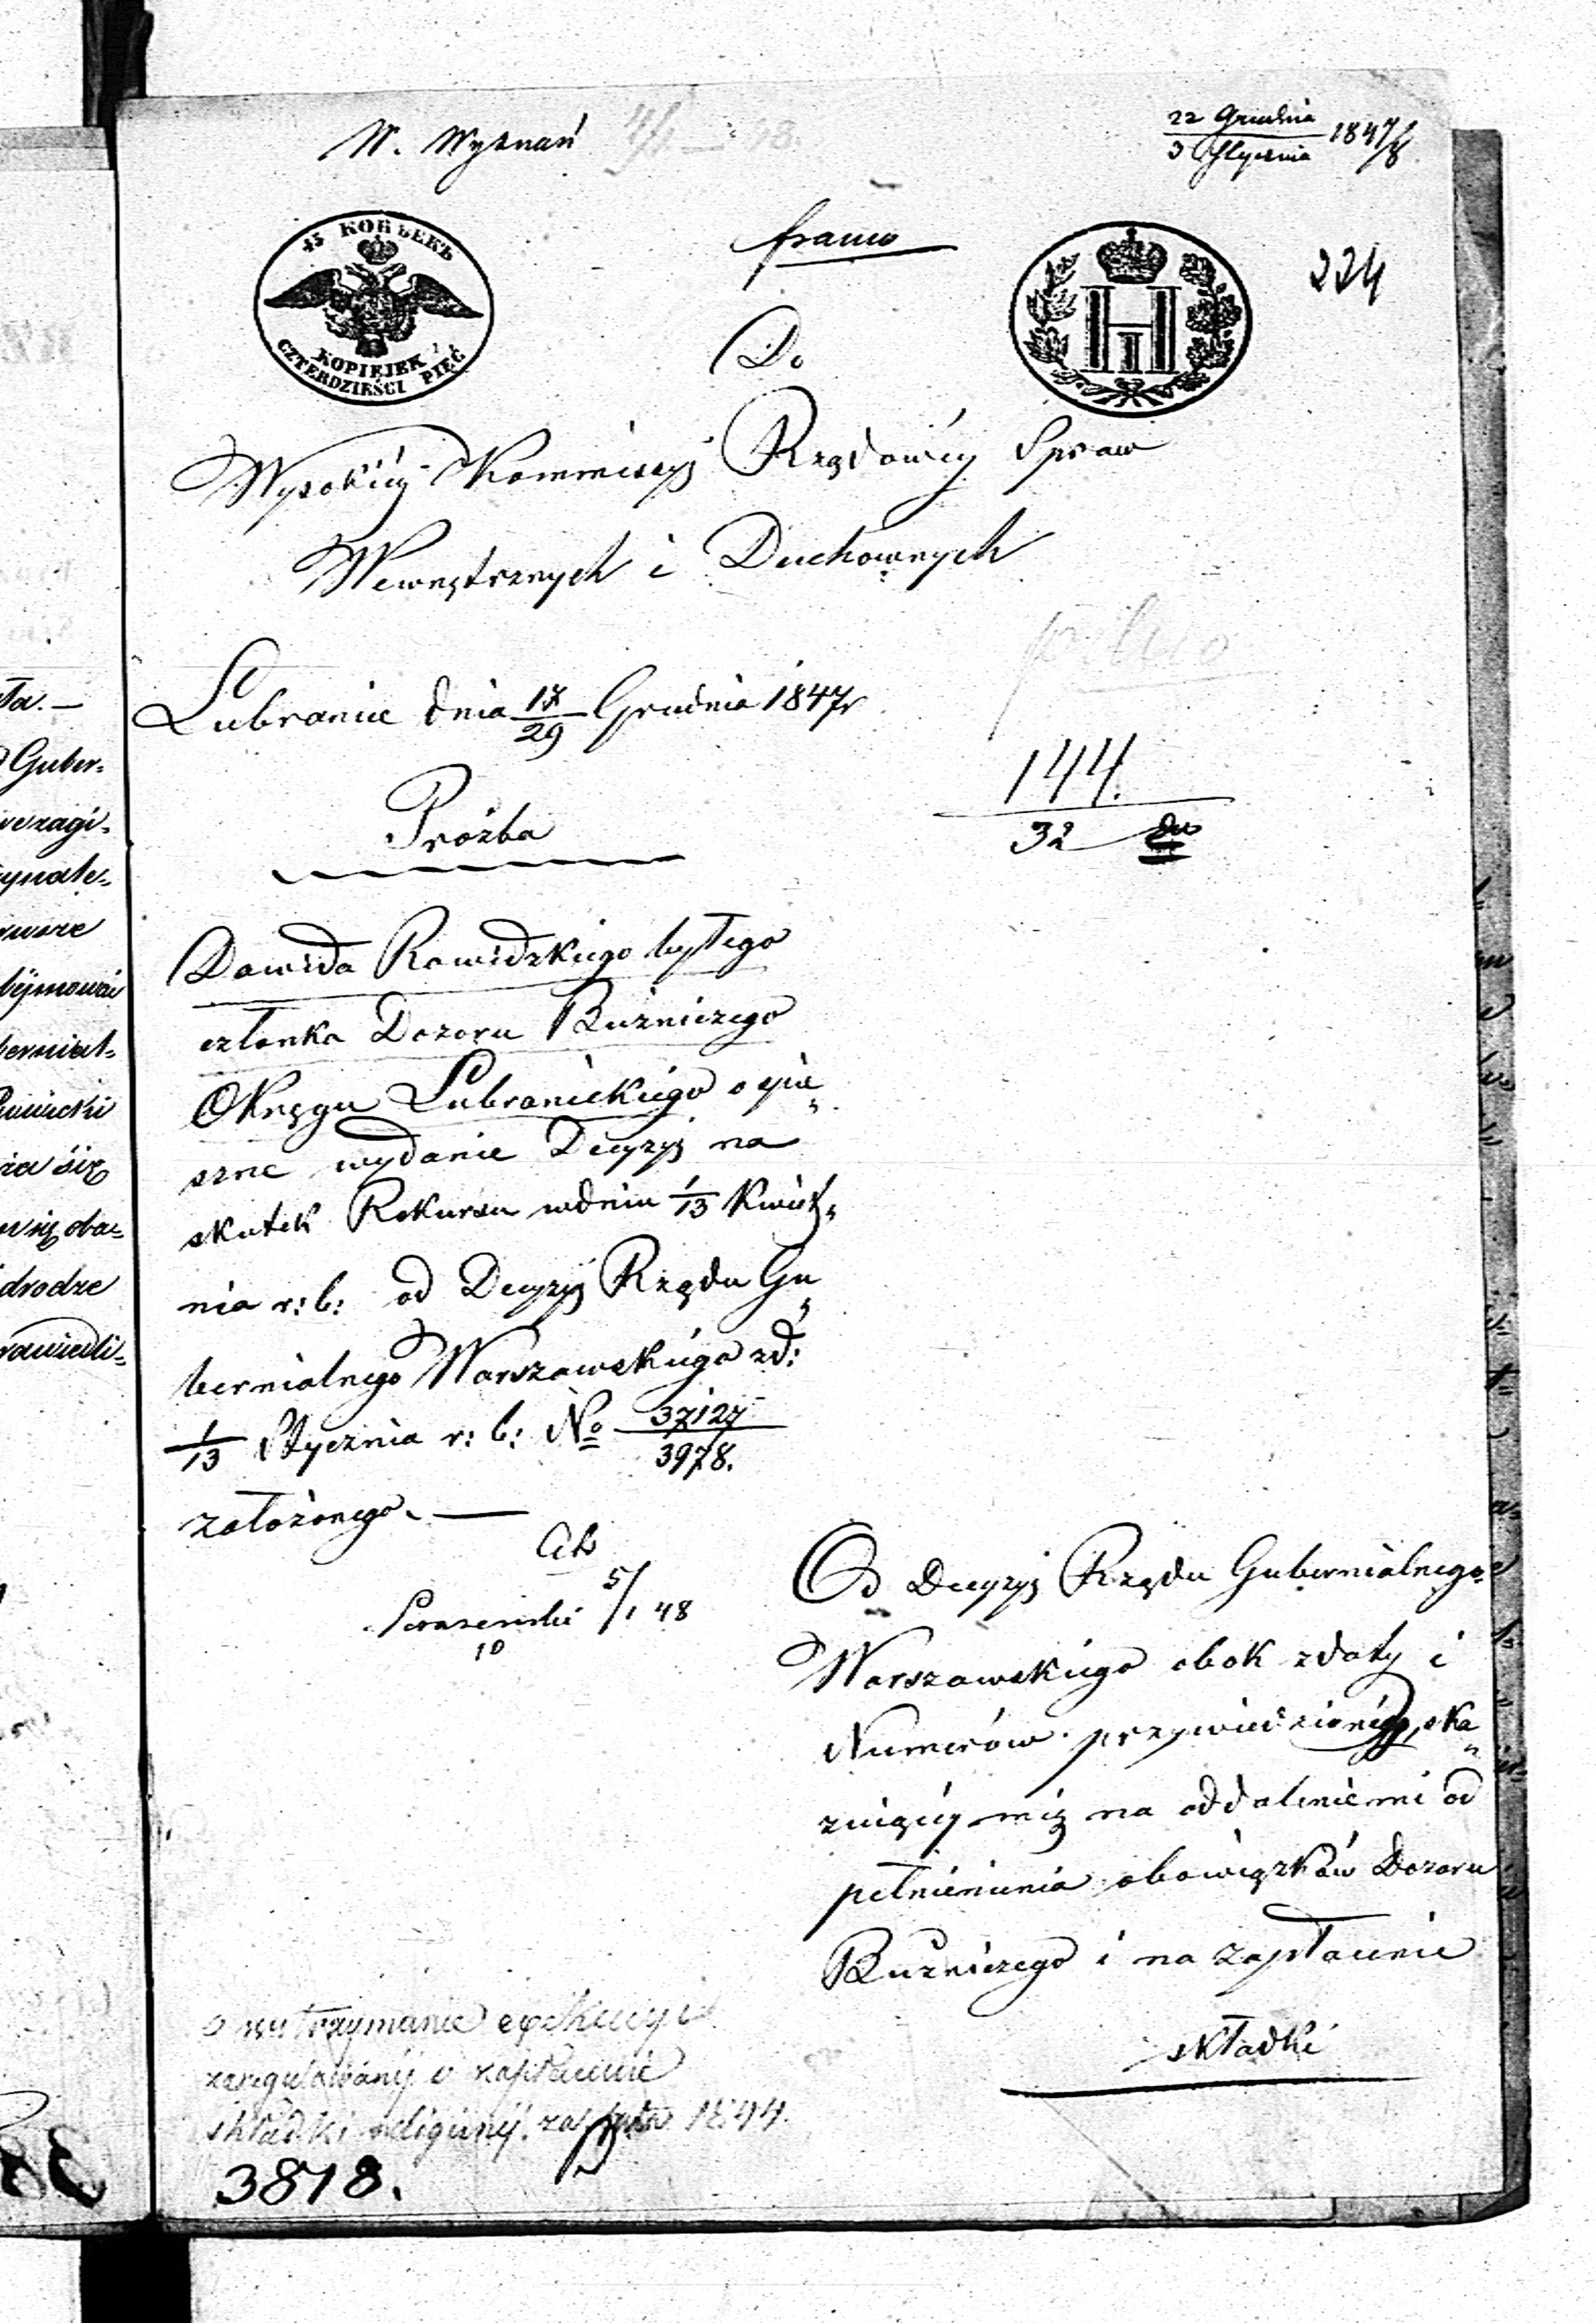 W. Wyznań
22 Grudnia
3 Stycznia 1847/8
franco
45 КОПѢЕКЪ
KOPIEJEK
CZTERDZIEŚCI PIĘĆ
НI
224
Do
Wysokiéj Kommissyi Rządowéj Spraw
Wewnętrznych i Duchownych
pilno
Lubranie dnia 17/29 Grudnia 1847r
144.
32
Prośba
Dawida Rawidzkiego byłego
członka Dozoru Bużniczego
Okręgu Lubranickiego o spie„
szne wydanie Decyzyi na
skutek Rekursu wdniu 1/13 Kwiet„
nia r: b: od Decyzyi Rządu Gu„
bernialnego Warszawskiego zd:
1/13 Stycznia r: b: No 37127/3978.
założonego. —
5/1 48
10
Od Decyzyi Rządu Gubernialnego
Warszawskiego obok zdaty i
Numerów przywiedzionéj, ska„
zuiącéj mię na oddalenie mi od
pełnienia obowiązków Dozoru
Bużniczego i na zapłacenie
składki
o wstrzymanie exekucyi
zaregulowanéj o zapłacenie
składki religijnéj za rok 1844.
3878.
ła. —
Guber=
ynate=
bijmować
ia się
drodze
rawiedli=